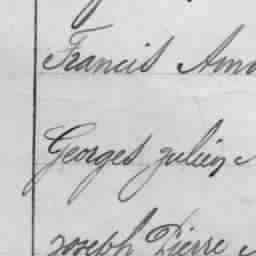 Francis
Georges julien
Joseph Pierre